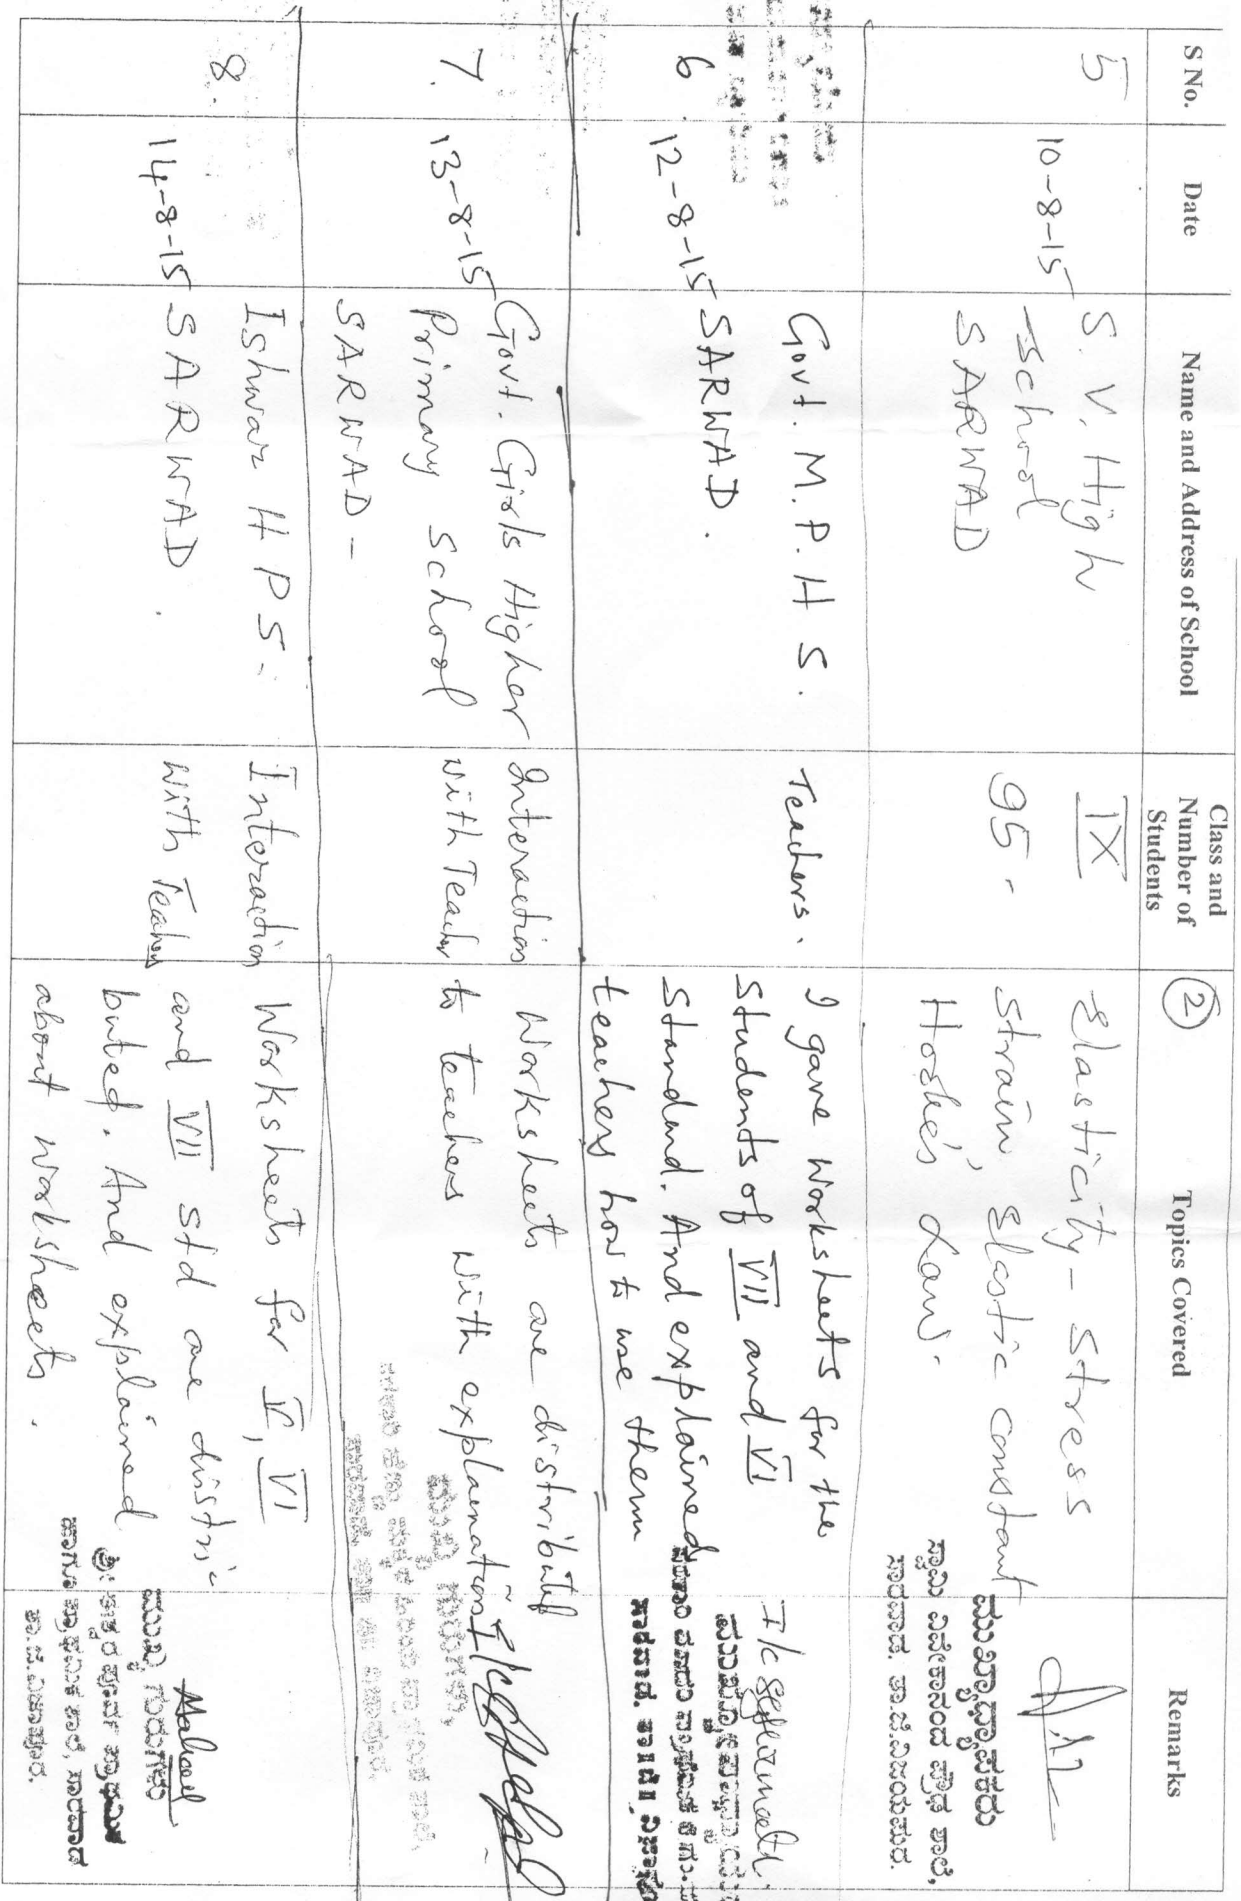 S No.
Date
Name and Address of School
Class and
Number of
Students
②
Topics Covered
Remarks
5
10-8-15
S. V. High
School
SARWAD
IX
95.
Elasticity - Stress
Strain, Elastic constant
Hooke's Law.
ಮುಖ್ಯೋಪಾಧ್ಯಾಪಕರು
ಸ್ವಾಮಿ ವಿವೇಕಾನಂದ ಪ್ರೌಢ ಶಾಲೆ,
ಸಾರವಾಡ. ತಾ.ಜಿ.ವಿಜಯಪುರ.
6
12-8-15
Govt. M. P. H S.
SARWAD.
Teachers.
I gave worksheets for the
students of VII and VI
Standard. And explained
teachers how to use them
I/c
ಸಾರವಾಡ.
7.
13-8-15
Govt. Girls Higher
Primary School
SARWAD-
Interaction
with Teacher
Worksheets are distributed
to teachers with explanation
I/c
ಮುಖ್ಯ ಗುರುಗಳು,
8.
14-8-15
Ishwar H P S-
SARWAD.
Interaction
with Teachers
Worksheets for V, VI
and VII std are distri-
buted. And explained
about worksheets.
ಮುಖ್ಯ ಗುರುಗಳು
ಶಾಲೆ, ಸಾರವಾಡ
ತಾ.ಜಿ.ವಿಜಾಪೂರ.